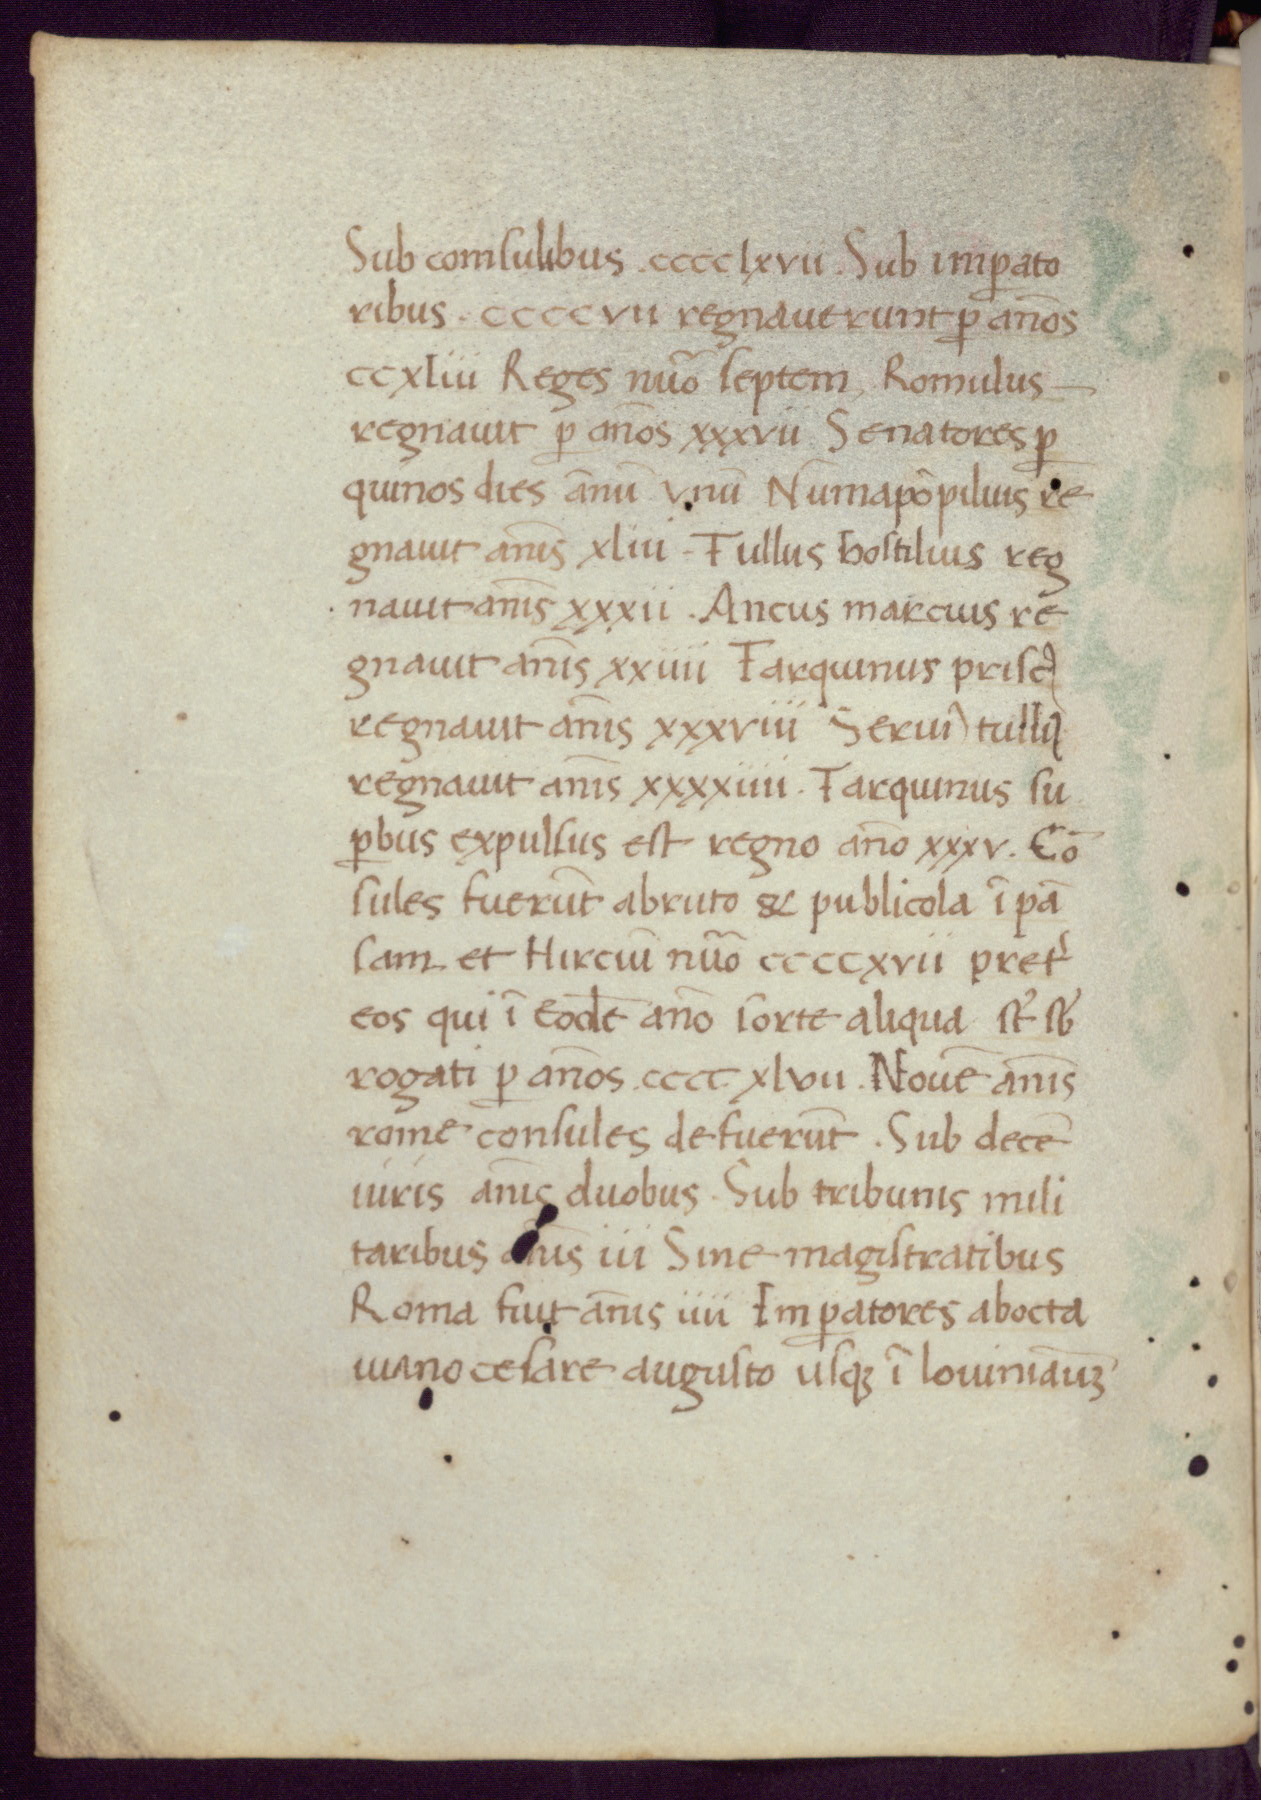 Sub comsulibus . cccclxvii . Sub imꝑato
ribus . ccccvii regnauerunt ꝑ an̄os
ccxliii Reges nūo septem, Romulus
regnauit ꝑ an̄os xxxvii Senatores ꝑ
quinos dies ānū vnū Numapōpilius re
gnauit an̄is xliii - Tullus hostilius reg
nauit an̄is xxxii . Ancus marcius re
gnauit an̄is xxiiii Tarquinus priscꝰ
regnauit an̄is xxxviii Seruiꝰ tulliꝰ
regnauit an̄is xxxxiiii . Tarquinus su
ꝑbus expulsus est regno an̄o xxxv . Cō
sules fuerūt abruto & publicola ī pā
sam et Hirciū nūo ccccxvii pret̉
eos qui ī eodē an̄o sorte aliqua st̄ sb̄
rogati ꝑ an̄os . cccc xlvii . Nouē an̄is
rome consules defuerūt . Sub decē
iuris an̄is duobus . Sub tribunis mili
taribus an̄is iii Sine magistratibus
Roma fuit an̄is iiii Imꝑatores abocta
uiano cesare augusto usqꝫ ī Iouiniānuꝫ